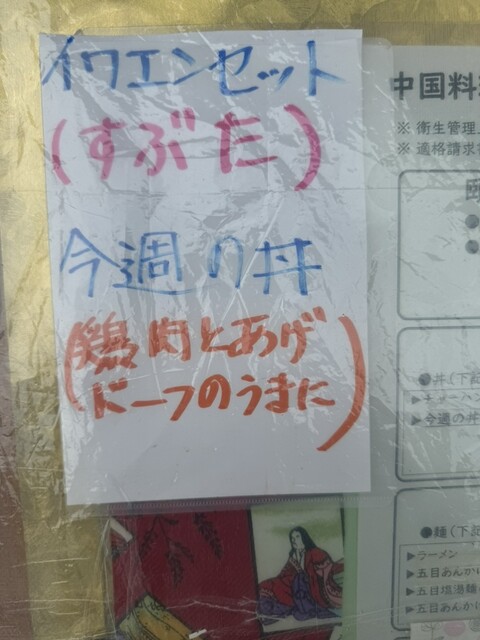 イワエンセット
(すぶた)
今週の丼
(鶏肉とあげ
ドーフのうまに)
中国料
※ 衛生管理
※ 適格請求
●丼(下記
▶チャーハン
▶今週の丼
●麺(下記
▶ラーメン
▶五目あんか
▶五目塩湯麺
▶五目あんか